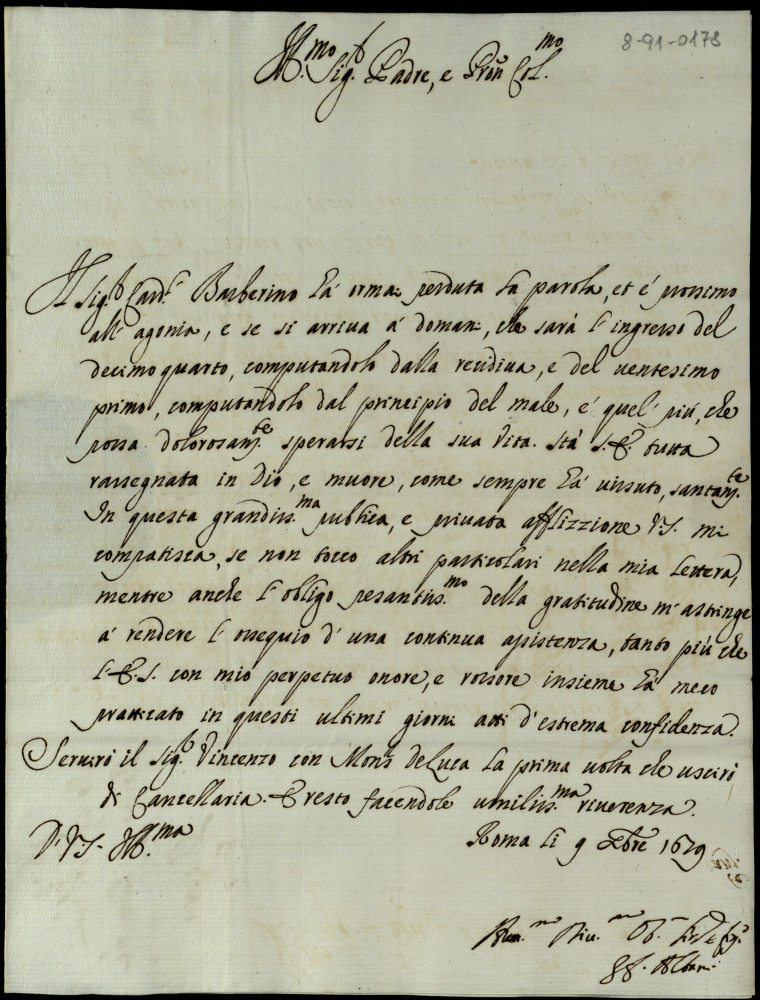 8-91-0178
Ill.mo Sig.r Padre, e Pron Col.mo
Il Sig.r Card.l Barberino hà ormai perduta la parola, et é prossimo
all' agonia, e se si arriua á domani, che sará l' ingresso del
decimo quarto, computandolo dalla recidiua, e del uentesimo
primo, computandolo dal principio del male, é quel piú, che
possa dolorosam.te sperarsi della sua vita. Stà S. E. tutta
rassegnata in Dio, e muore, come sempre hà uissuto, santam.te
In questa grandiss.ma publica, e priuata afflizzione V.S. mi
compatisca, se non tocco altri particolari nella mia lettera,
mentre anche l' obligo pesantiss.mo della gratitudine m' astringe
á rendere l' ossequio d' una continua assistenza, tanto piú che
l' E. S. con mio perpetuo onore, e rossore insieme hà meco
pratticato in questi ultimi giorni atti d' estrema confidenza.
Seruirò il Sig.r Vincenzo con Mons. de Luca la prima uolta che uscirò
di Cancellaria. E resto facendole umiliss.ma riuerenza.
D. V.S. Ill.ma
Roma li 9 Xbre 1679
G. F. Albani